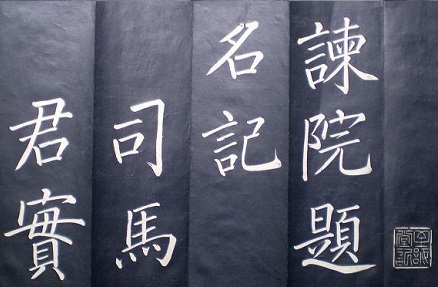 諫院題
名記
司馬
君實